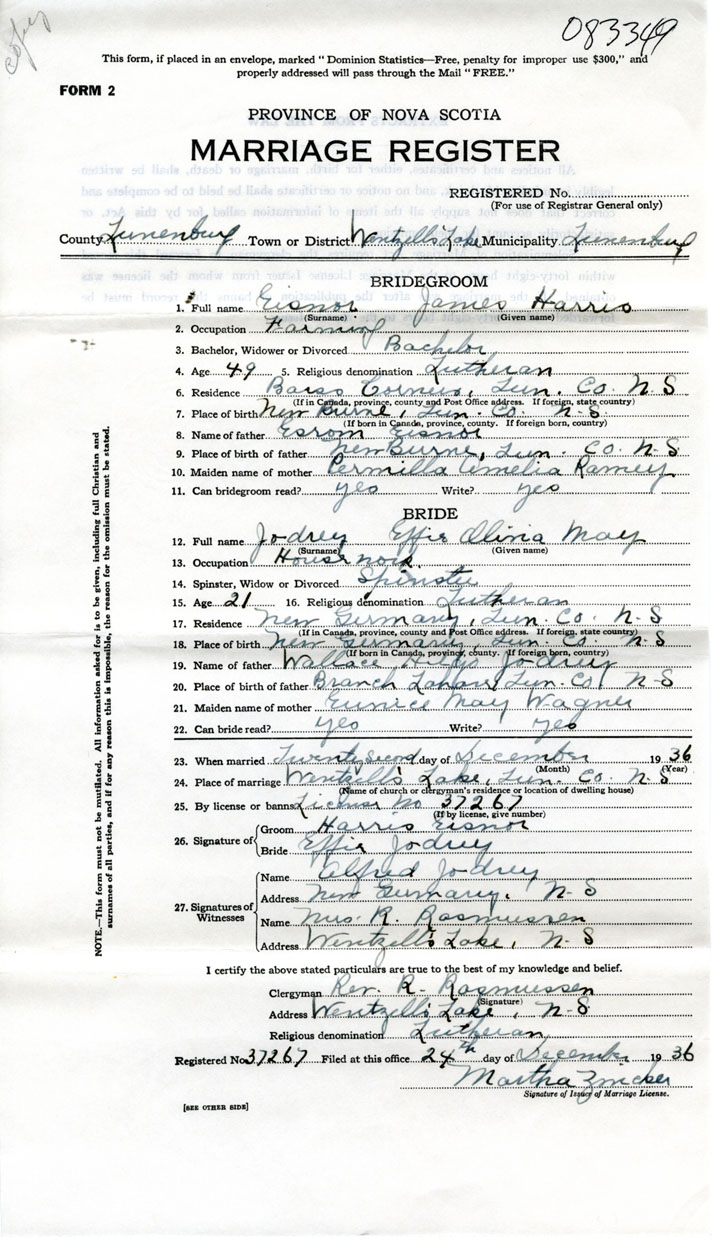 copy
083349
This form, if placed in an envelope, marked " Dominion Statistics—Free, penalty for improper use $300," and
properly addressed will pass through the Mail " FREE."
FORM 2
PROVINCE OF NOVA SCOTIA
MARRIAGE REGISTER
REGISTERED No.
(For use of Registrar General only)
County Lunenburg Town or District Wentzells Lake Municipality Lunenburg
BRIDEGROOM
1. Full name Eisnor James Harris
(Surname) (Given name)
2. Occupation Farming
3. Bachelor, Widower or Divorced Bachelor
4. Age 49 5. Religious denomination Lutheran
6. Residence Barss Corners, Lun. Co. N-S
(If in Canada, province, county and Post Office address. If foreign, state country)
7. Place of birth New Burne, Lun. Co. N-S
(If born in Canada, province, county. If foreign born, country)
8. Name of father Esrom Eisnor
9. Place of father New Burne, Lun. Co. N-S
10. Maiden name of mother Permilla Amelia Ramey
11. Can bridegroom read? yes Write? yes
BRIDE
12. Full name Jodrey Effie Olivia May
(Surname) (Given name)
13. Occupation House work
14. Spinster, Widow or Divorced Spinster
15. Age 21 16. Religious denomination Lutheran
17. Residence New Germany, Lun. Co. N-S
(If in Canada, province, county and Post Office address. If foreign, state country)
18. Place of birth New Germany, Lun. Co. N-S
(If born in Canada, province, county. If foreign born, country)
19. Name of father Wallace Jodrey
20. Place of birth of father Branch Lahave, Lun. Co. N-S
21. Maiden name of mother Eunice May Wagner
22. Can bride read? yes Write? yes
23. When married Twenty second day of December 1936
(Month) (Year)
24. Place of marriage Wentzells Lake, Lun. Co. N-S
(Name of church or clergyman's residence or location of dwelling house)
25. By license or banns License No 37267
(If by license, give number)
26. Signature of Groom Harris Eisnor
Bride Effie Jodrey
27. Signatures of Witnesses
Name Alfred Jodrey
Address New Germany, N-S
Name Mrs. R. Rasmussen
Address Wentzells Lake, N-S
I certify the above stated particulars are true to the best of my knowledge and belief.
Clergyman Rev. R. Rasmussen
(Signature)
Address Wentzells Lake, N-S
Religious denomination Lutheran
Registered No 37267 Filed at this office 24th day of December 1936
Martha Zwicker
Signature of Issuer of Marriage License.
[SEE OTHER SIDE]
NOTE.—This form must not be mutilated. All information asked for is to be given, including full Christian and
surnames of all parties, and if for any reason this is impossible, the reason for the omission must be stated.